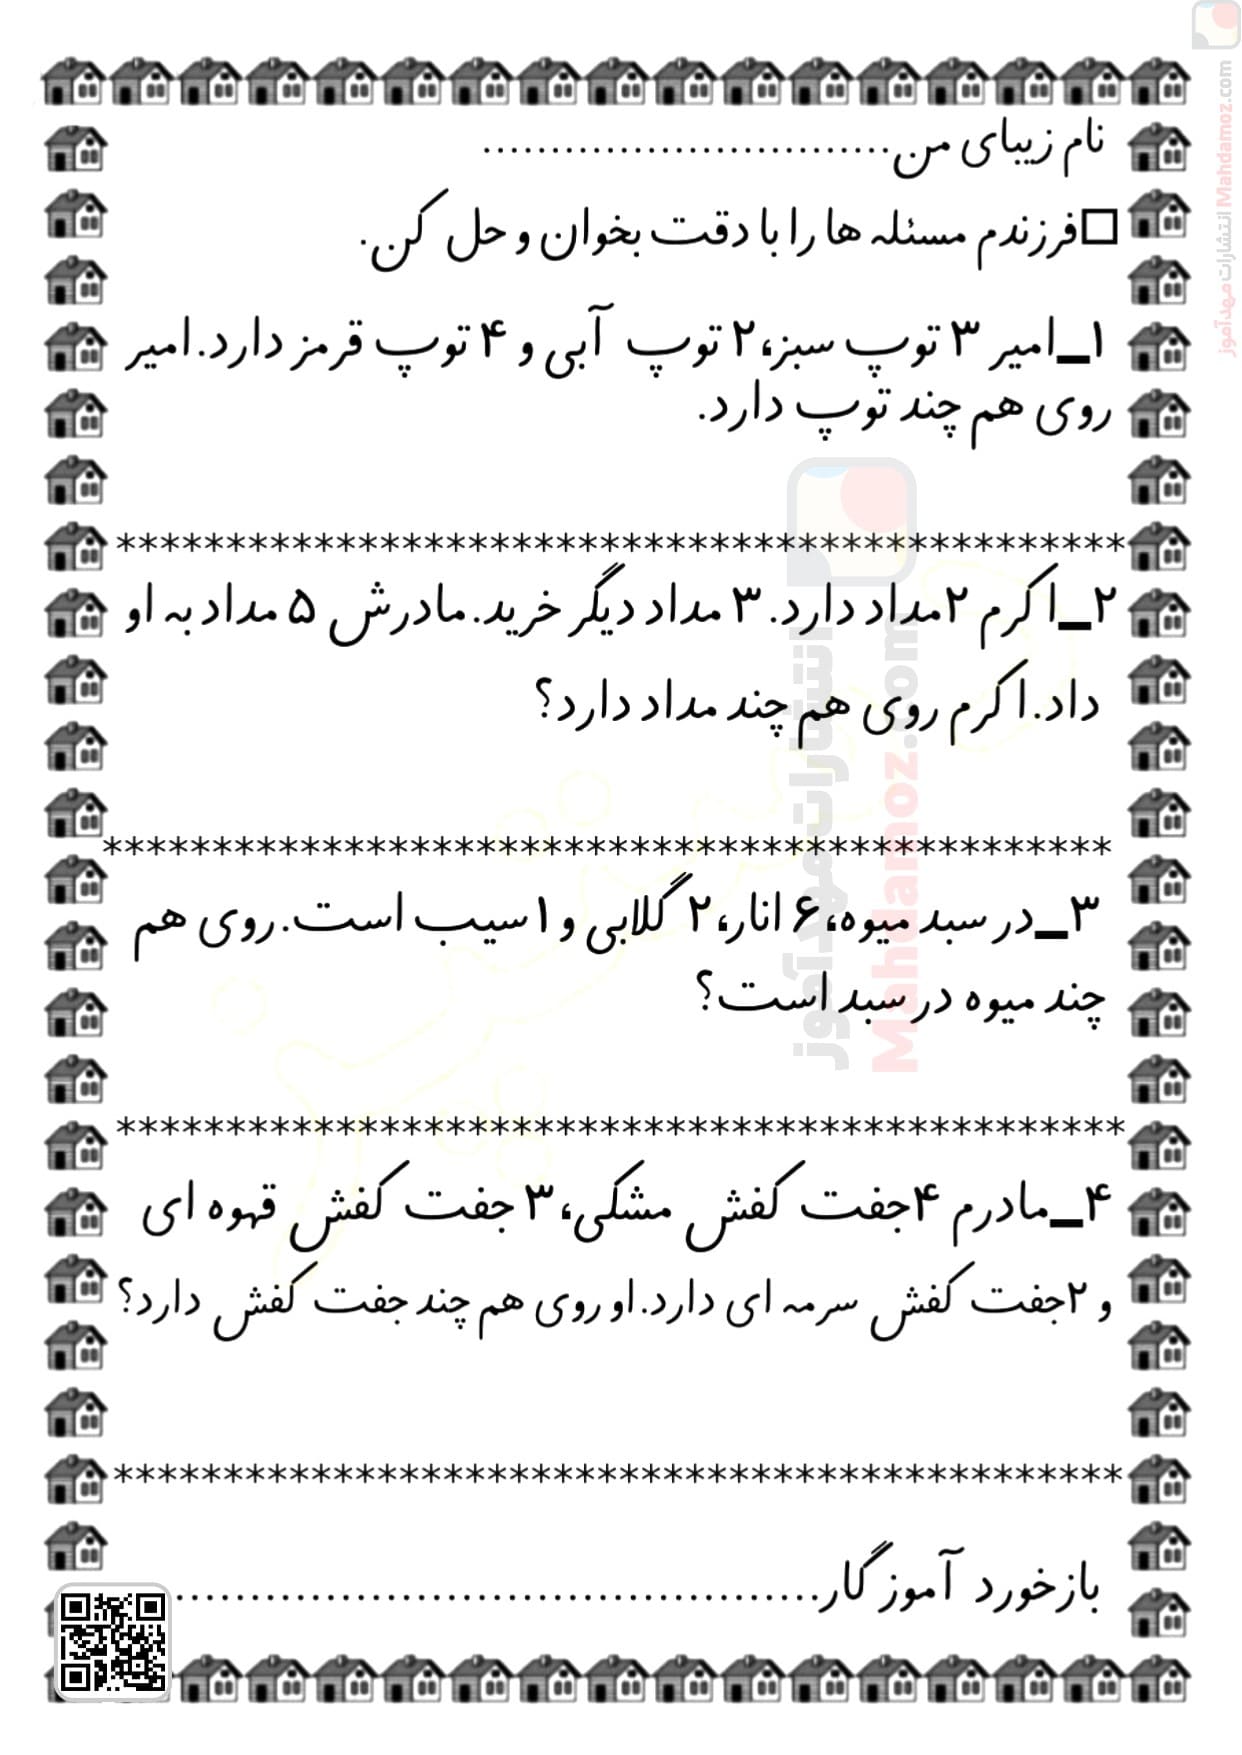 نام زیبای من..............................
□فرزندم مسئله ها را با دقت بخوان و حل کن.
۱_امیر ۳ توپ سبز،۲ توپ آبی و ۴ توپ قرمز دارد.امیر
روی هم چند توپ دارد.
**********************************************
۲_اکرم ۲مداد دارد. ۳ مداد دیگر خرید.مادرش ۵ مداد به او
داد.اکرم روی هم چند مداد دارد؟
**********************************************
۳_در سبد میوه،۶ انار،۲ گلابی و ۱سیب است.روی هم
چند میوه در سبد است؟
**********************************************
۴_مادرم ۴جفت کفش مشکی،۳ جفت کفش قهوه ای
و ۲جفت کفش سرمه ای دارد.او روی هم چند جفت کفش دارد؟
**********************************************
بازخورد آموزگار...........................................
انتشارات مهدآموز
Mahdamoz.com
انتشارات مهدآموز Mahdamoz.com